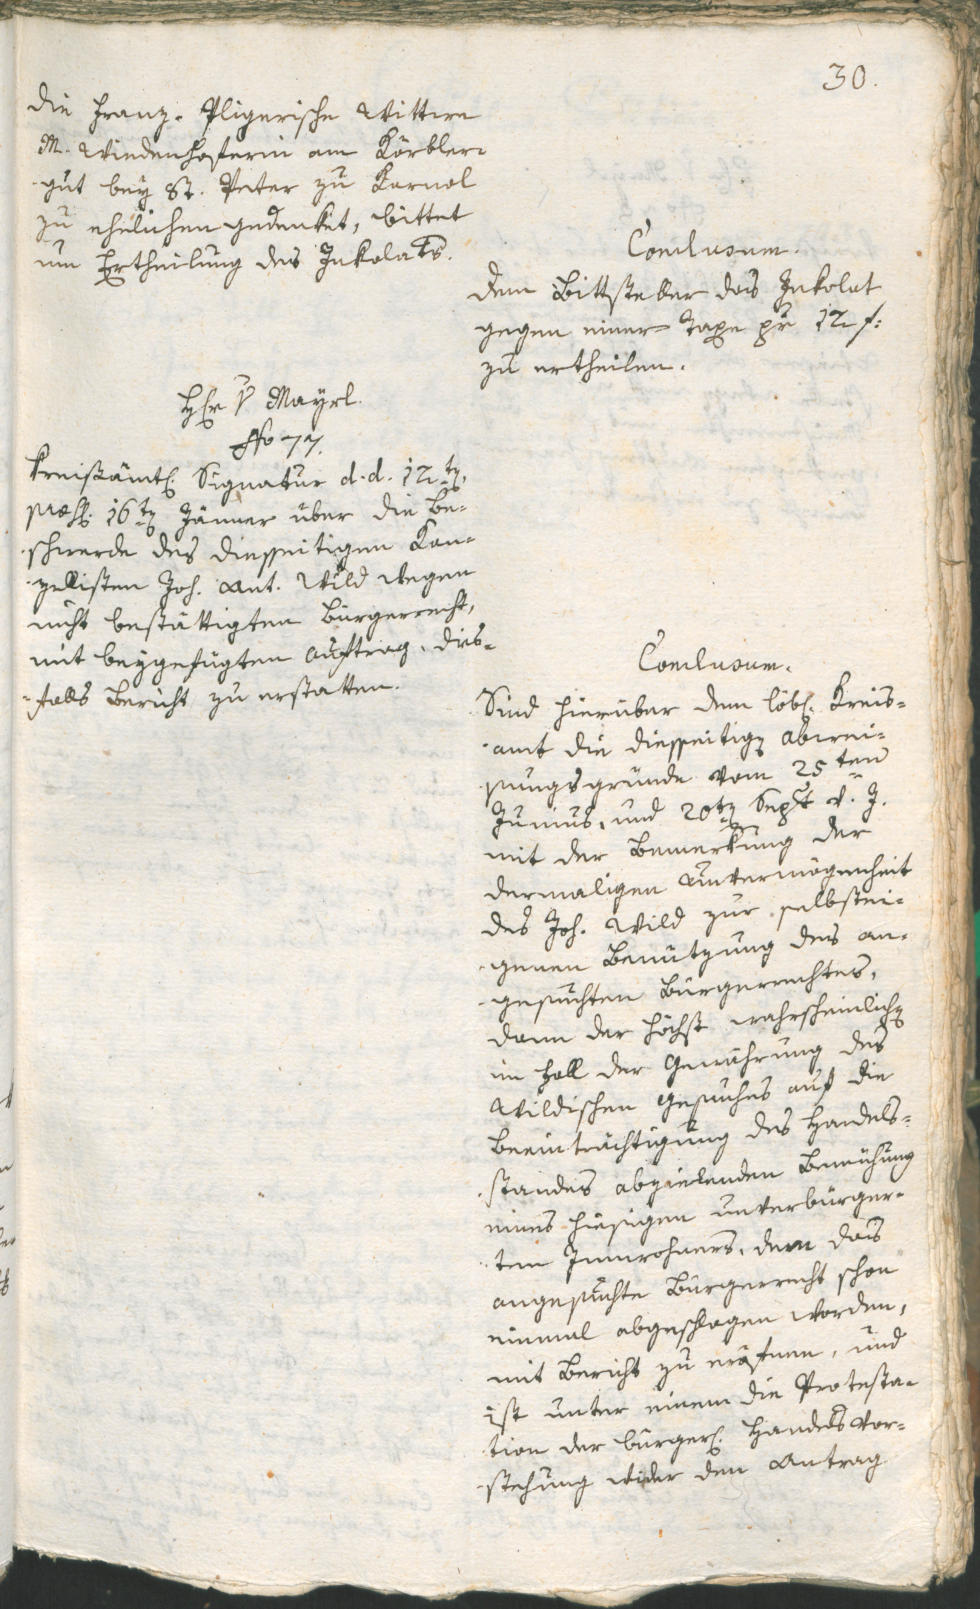 30.
die Franz-Pligerische Wittwe
M. Windenhoferin am Körbler-
gut bey St. Peter zu Karnol
zu ehelichen gedenket, bittet
um Ertheilung des Inkolats.
Conclusum.
Dem Bittsteller das Inkolat
gegen einer Taxe pr 12 f:
zu ertheilen.
Hr Mayrl.
No 77.
Kreißämtl. Signatur d. d. 12ten,
præs. 16ten Jänner über die Be-
schwerde des diesseitigen Kan-
zellisten Joh. Ant. Wild wegen
nicht bestättigten Bürgerrecht,
mit beygefügten Auftrag, dies-
falls Bericht zu erstatten.
Conclusum.
Sind hierüber dem löbl. Kreis-
amt die diesseitigen Abwei-
sungsgründe vom 25ten
Junius, und 20ten Sept. v. J.
mit der Bemerkung der
dermaligen Unvermögenheit
des Joh. Wild zur selbstei-
genen Benutzung des an-
gesuchten Bürgerrechtes,
dann der höchst wahrscheinlichen
im Fall der Gewährung des
Wildischen Gesuches auf die
Beeinträchtigung des Handels-
standes abzielenden Bemühung
eines hiesigen unverbürger-
ten Innwohners, dem das
angesuchte Bürgerrecht schon
einmal abgeschlagen worden,
mit Bericht zu eröfnen, und
ist unter einem die Protesta-
tion der bürgerl. Handelsvor-
stehung wider den Antrag